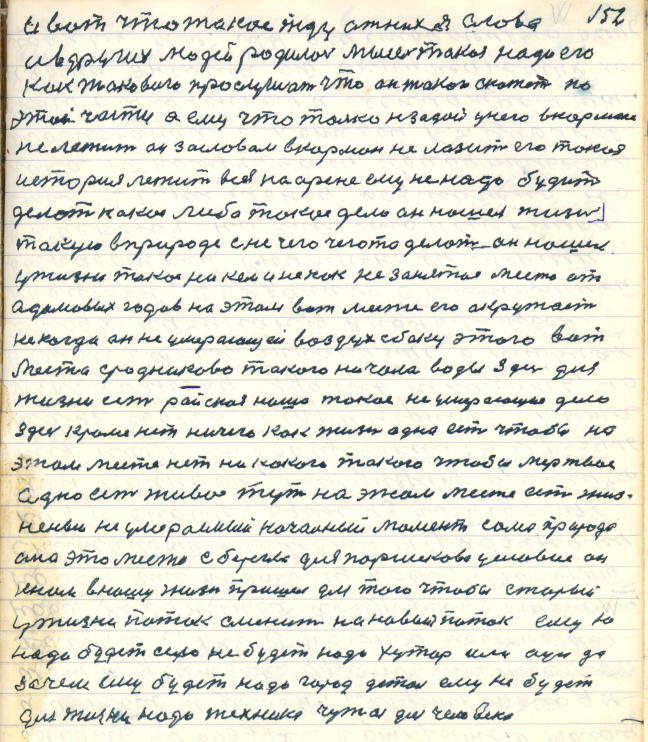 152
и вот что такое жду от них я слова
и вдругих людей родилос мысл такая надо его
как такового прослушат что он такой скажет по
этой части а ему что толко нзадой унего вкармане
не лежит он засловам вкарман не лазит его такая
история лежит вся на арене ему не надо будит
делат какое либа такое дело он нашел жизн
такую вприроде с не чего чегото делат он нашел
ужизни такое ни кем и не как не занятое место от
адамовых годов на этом вот месте его акружает
некогда он не умирающей воздух сбаку этого вот
места сродниково такого начала воды здес для
жизни ест райская наша такое не умирающие дело
здес кроме нет ничего как жизн одна ест чтобы на
этом месте нет ни какого такого чтобы мертвое
а одно ест живое тут на этом месте ест жиз-
нены не умераимый началный момент сама природа
она это место сберегла для паршекова условие он
ним внашу жизн пришел для того чтобы старый
ужизни поток сменит на новый поток ему ю
надо будет село не будет надо хутар или аул да
зачем ему будет надо город детал ему не будет
для жизни надо техника чужая для человека